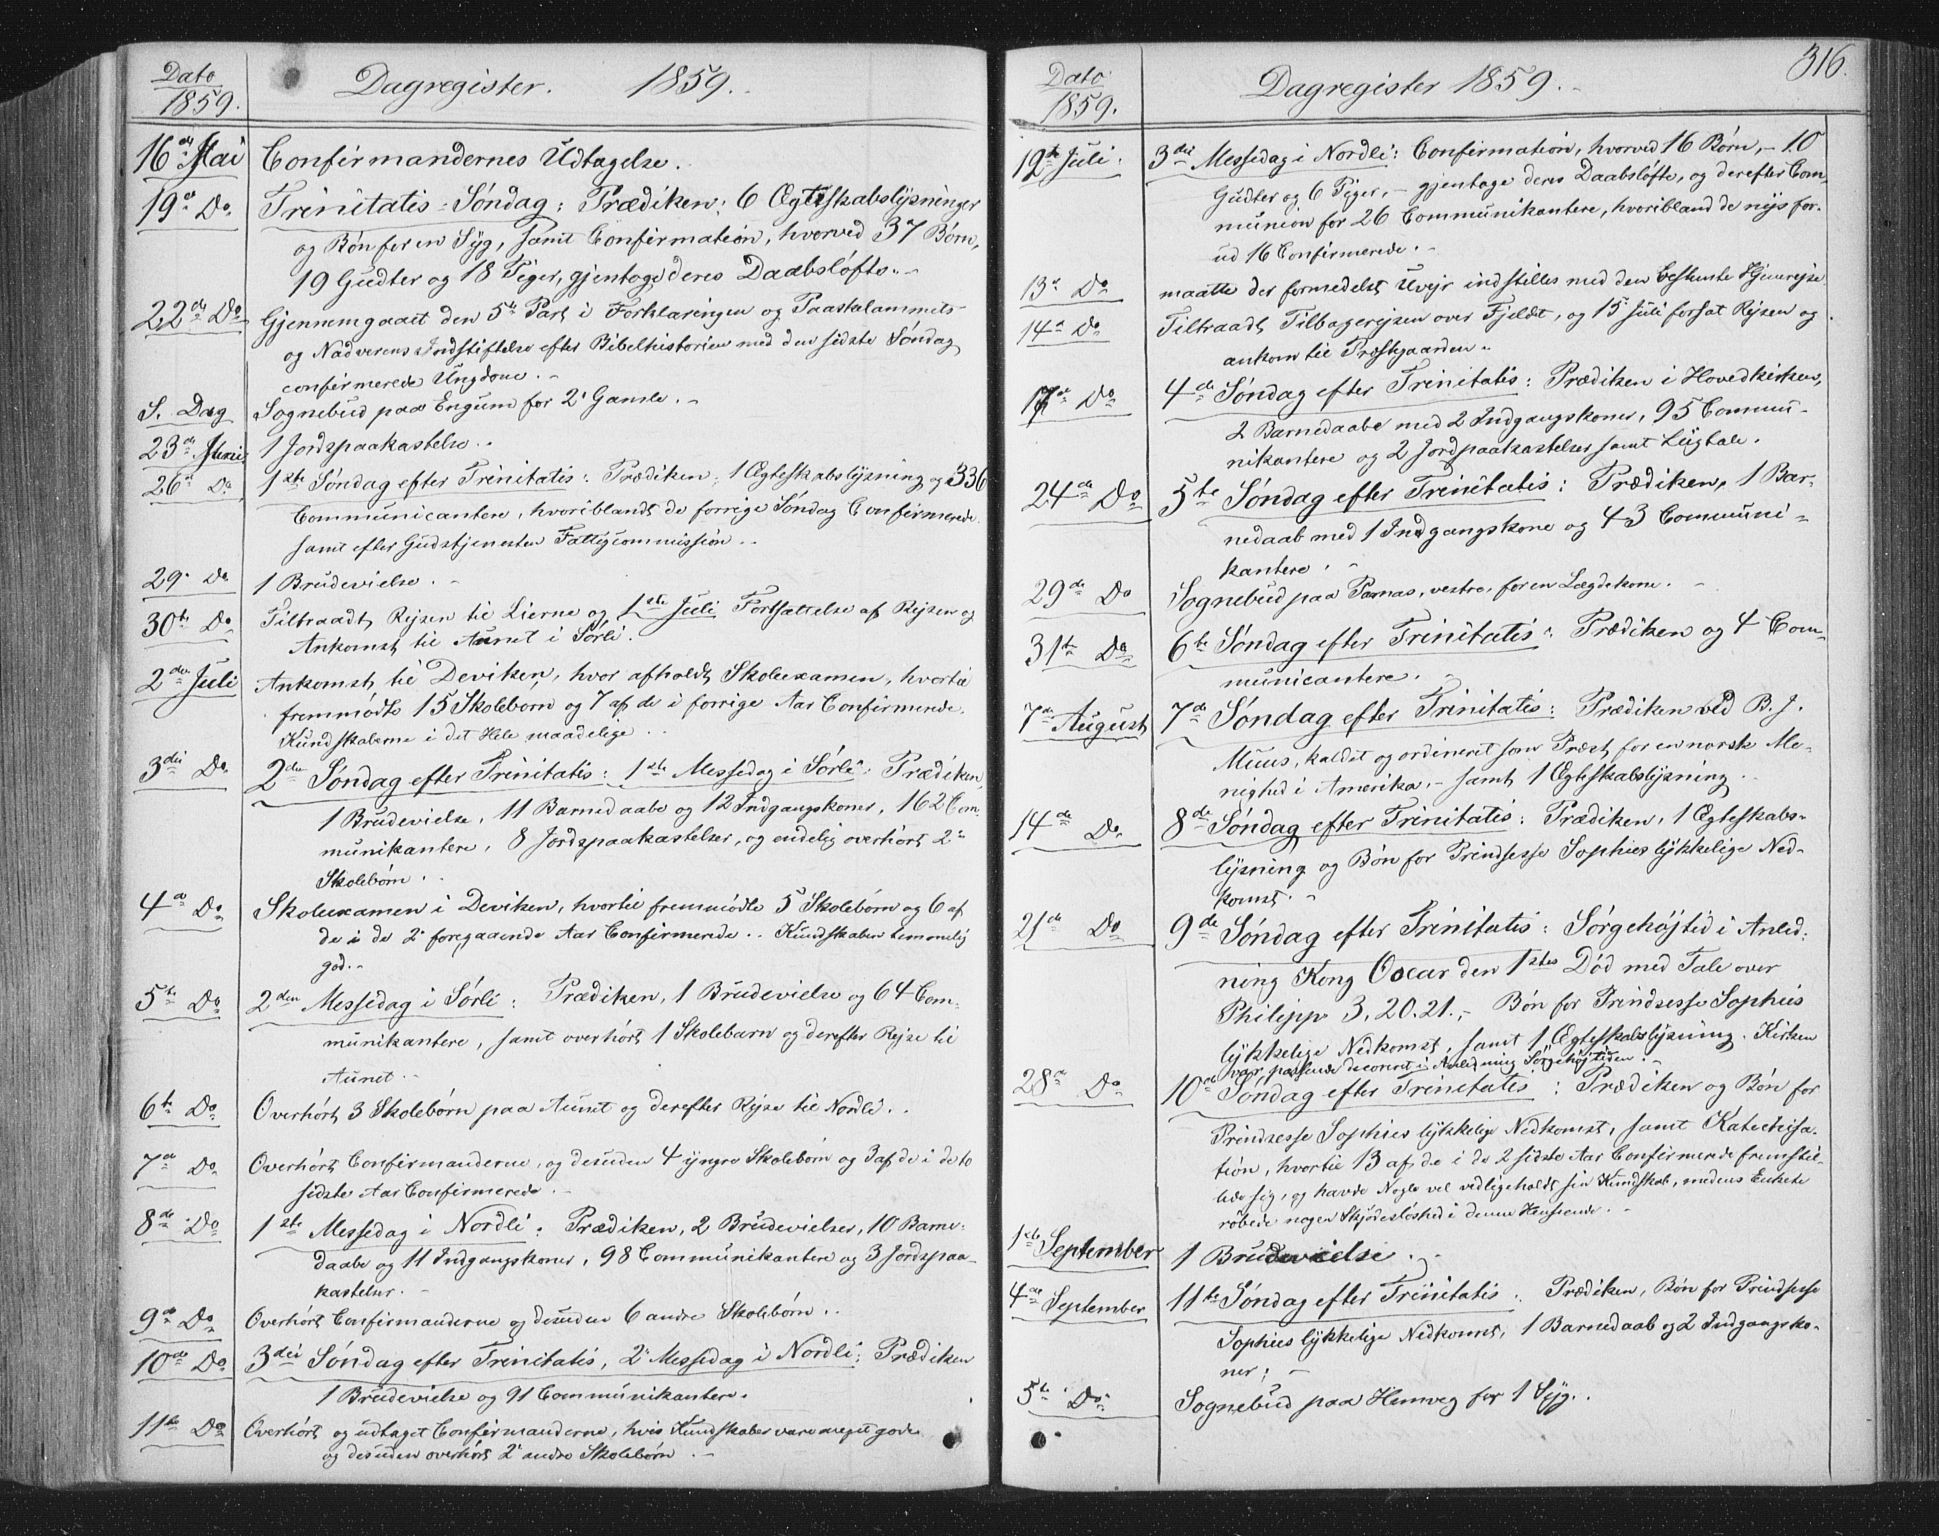 Dato
1859.
Dagregister. 1859.
16de Mai Confirmandernes Udtagelse.
19de Do Trinitatis-Søndag: Prædiken; 6 Ægteskabslysninger
og Bøn for en Syg, samt Confirmation, hvorved 37 Børn,
19 Gudter og 18 Piger, gjentoge deres Daabsløfte.
22de Do Gjennemgaaet den 5te Part i Forklaringen og Paaskelammets
og Nadverens Indstiftelse efter Bibelhistorien med den sidste Søndag
confirmerede Ungdom.
S. Dag Sognebud paa Engum for 2 Gamle.
23de Juni 1 Jordspaakastelse.
26de Do 1ste Søndag efter Trinitatis: Prædiken, 1 Ægteskabslysning og 336
Communicantere, hvoriblandt de forrige Søndag Confirmerede
samt efter Gudstjenesten Fattigcommission.
29. Do 1 Brudevielse.
30te Do Tiltraadt Rejsen til Lierne og 1ste Juli Fortsættelse af Rejsen og
Ankomst til Aunet i Sørli.
2den Juli Ankomst til Deviken, hvor afholdt Skoleexamen, hvortil
fremmødte 15 Skolebørn og 7 af de i forrige Aar Confirmerede.
Kundskaberne i det Hele maadelige.
3die Do 2den Søndag efter Trinitatis: 1ste Messedag i Sørli: Prædiken,
1 Brudevielse, 11 Barnedaabe og 12 Indgangskoner, 162 Com-
munikantere, 8 Jordspaakastelser, og endelig overhørt 2
Skolebørn.
4de Do Skoleexamen i Deviken, hvortil fremmødte 5 Skolebørn og 6 af
de i de 2 foregaaende Aar Confirmerede. Kundskaben temmelig
god.
5te Do 2den Messedag i Sørli: Prædiken, 1 Brudevielse og 64 Com-
munikantere, samt overhørt 1 Skolebarn og derefter Rejse til
Aunet.
6te Do Overhørt 3 Skolebørn paa Aunet og derefter Rejse til Nordli.
7de Do Overhørt Confirmanderne, og desuden 4 yngre Skolebørn og 3 af de i de to
sidste Aar Confirmerede.
8de Do 1ste Messedag i Nordli: Prædiken, 2 Brudevielser, 10 Barne-
daabe og 11 Indgangskoner, 98 Communikantere og 3 Jordspaa-
kastelser.
9de Do Overhørt Confirmanderne og desuden 6 andre Skolebørn.
10de Do 3die Søndag efter Trinitatis, 2. Messedag i Nordli: Prædiken
1 Brudevielse og 91 Communikantere.
11te Do Overhørt og udtaget Confirmanderne, hvis Kundskaber vare meget gode
og desuden overhørt 2 andre Skolebørn.
316.
Dato
1859.
Dagregister 1859.
12te Juli. 3die Messedag i Nordli: Confirmation, hvorved 16 Børn, 10
Gudter og 6 Piger, gjentoge deres Daabsløfte, og derefter Com-
munion for 26 Communikantere, hvoriblandt de nys for-
ud 16 Confirmerede.
13de Do maatte der formedelst Uvejr indstilles med den bestemte Hjemrejse.
14de Do Tiltraadt Tilbagerejsen over Fjeldt, og 15 Juli forsat Rejsen og
ankom til Præstgaarden.
17de Do 4de Søndag efter Trinitatis: Prædiken i Hovedkirken,
2 Barnedaabe med 2 Indgangskoner, 95 Commu-
nikantere og 2 Jordpaakastelser samt Liigtale.
24de Do 5te Søndag efter Trinitatis: Prædiken, 1 Bar-
nedaab med 1 Indgangskone og 43 Communi-
kantere.
29de Do Sognebud paa Parnas, vestre, for en Lægdekone.
31te Do 6te Søndag efter Trinitatis: Prædiken og 4 Com-
municantere.
7de August 7de Søndag efter Trinitatis: Prædiken ved B. J.
Muus, kaldet og ordineret som Præst for en norsk Me-
nighed i Amerika, samt 1 Ægteskabslysning.
14de Do. 8de Søndag efter Trinitatis: Prædiken, 1 Ægteskabs-
lysning og Bøn for Prindsesse Sophies lykkelige Ned-
komst.
21de Do 9de Søndag efter Trinitatis: Sørgehøjtid i Anled-
ning Kong Oscar den 1stes Død med Tale over
Philipp 3, 20.21., Bøn for Prindsesse Sophies
lykkelige Nedkomst, samt 1 Ægteskabslysning. Kirken
var passende decoreret i Anledning Sørgehøjtiden.
28de Do 10de Søndag efter Trinitatis: Prædiken og Bøn for
Prindsesse Sophies lykkelige Nedkomst, samt Katechisa-
tion, hvortil 13 af de i de 2 sidste Aar Confirmerede fremstil-
lede sig, og havde Nogle vel vedligeholdt sin Kundskab, medens Enkelte
røbede nogen Skjødesløshed i denne Henseende.
1ste September 1 Brudevielse.
4de September 11te Søndag efter Trinitatis: Prædiken, Bøn for Prindsesse
Sophies lykkelige Nedkomst, 1 Barnedaab og 2 Indgangsko-
ner;
5te Do Sognebud paa Homveg for 1 Syg.